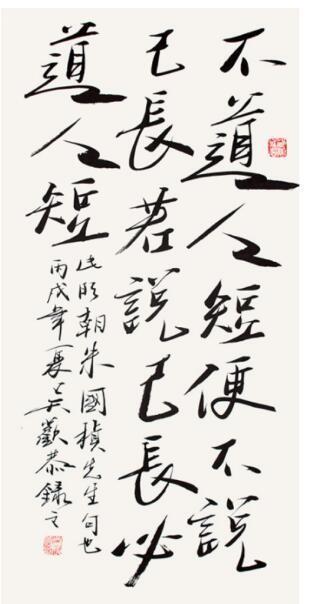 不道人短便不說
己長若說己長必
道人短
此明朝朱國楨先生句也
丙戌年夏吴歡恭錄之